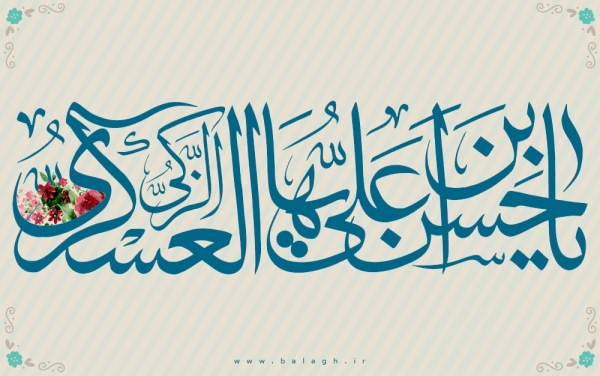 یا حسن بن علی ایها الزکی العسکری
www.balagh.ir